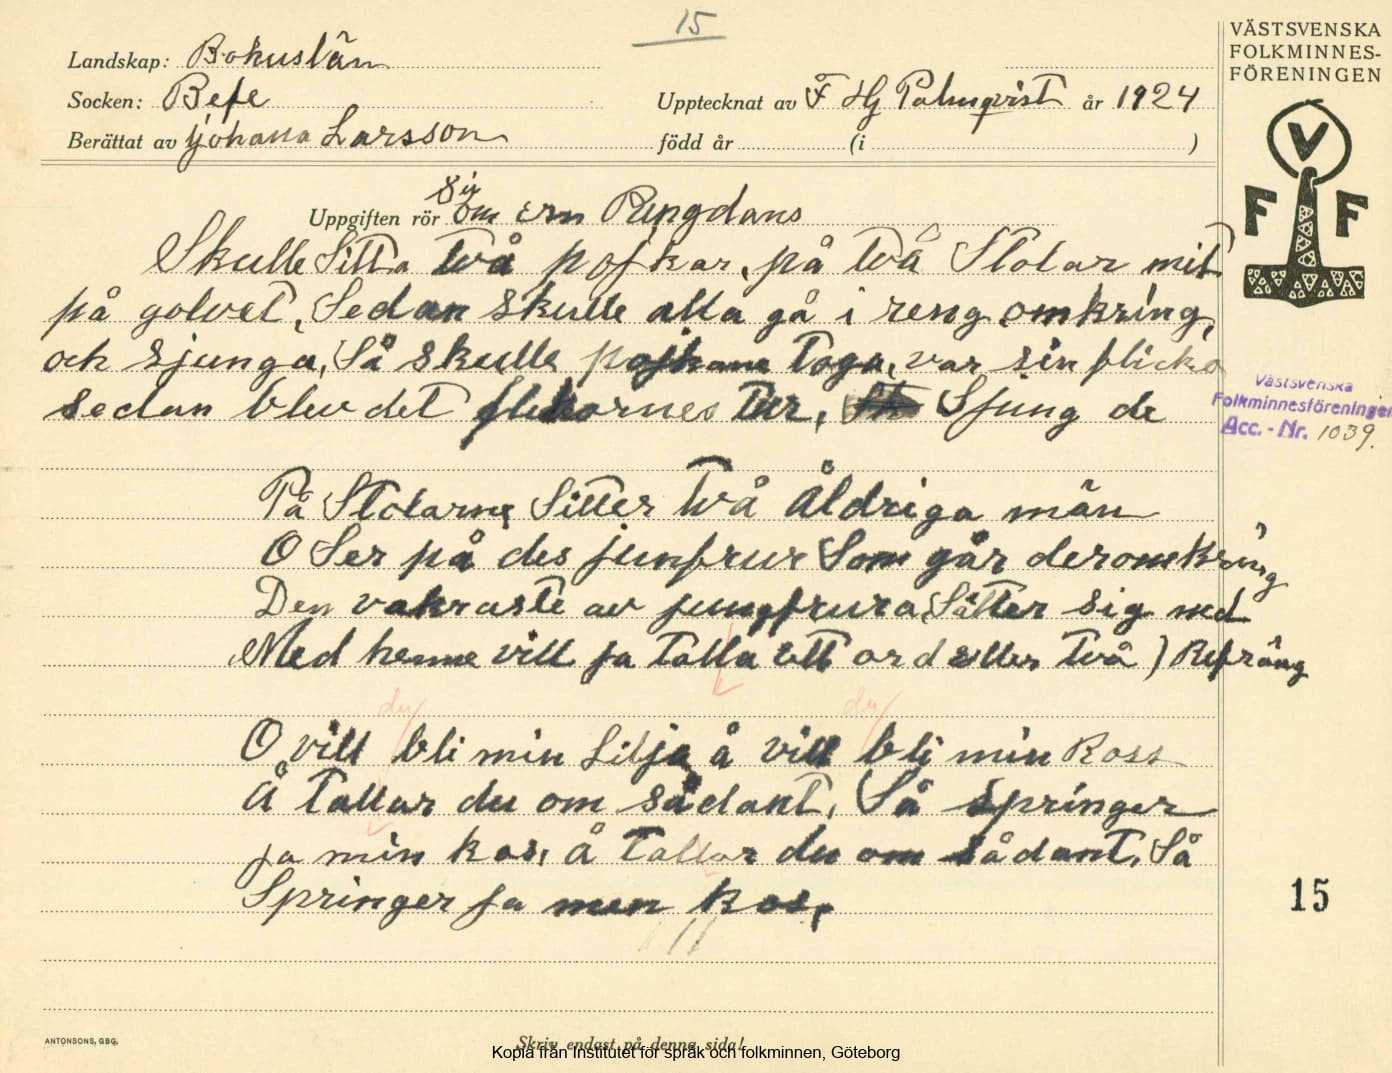 15
VÄSTSVENSKA
FOLKMINNES-
FÖRENINGEN
Landskap: Bohuslän
Socken: Befe
Upptecknat av F Hj Palmqvist år 1924
Berättat av Johana Larsson född år (i )
V
F F
Uppgiften rör om em Ringdans
Skulle Sitta två pojkar, på två Stolar mit
på golvet, Sedan skulle alla gå i reng omkring,
och sjunga, Så skulle pojkana Toga, var sin flicka
sedan blev det flikornes Tur, Sjung de
Västsvenska
Folkminnesföreningen
Acc. - Nr. 1039.
På Stolarne Sitter två åldriga män
O Ser på des junfrur Som går deromkring
Den vakraste av jungfrura Sätter sig ned
Med henne vill ja Talla ett ord eller Två ) Refräng
du du
O vill bli min Lilja å vill bli min Ross
Å Tallar du om sådant, Så springer
ja min kos, å Tallar du om sådant, Så
Springer ja men kos,
15
ANTONSONS, GBG.
Skriv endast på denna sida!
Kopia från Institutet för språk och folkminnen, Göteborg